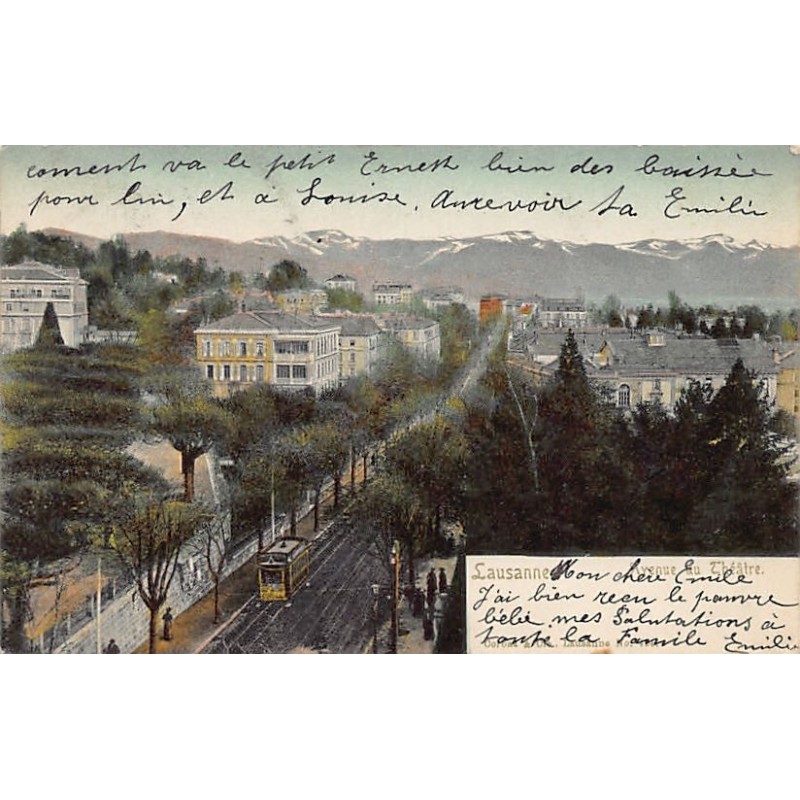 coment va le petit Ernest bien des baissée
pour lui, et à Louise. Aurevoir ta Emilie
Lausanne Avenue du Théâtre.
Mon chère Emile
J'ai bien recu le pauvre
bébé mes Salutations à
toute la Famile Emilie
Lausanne